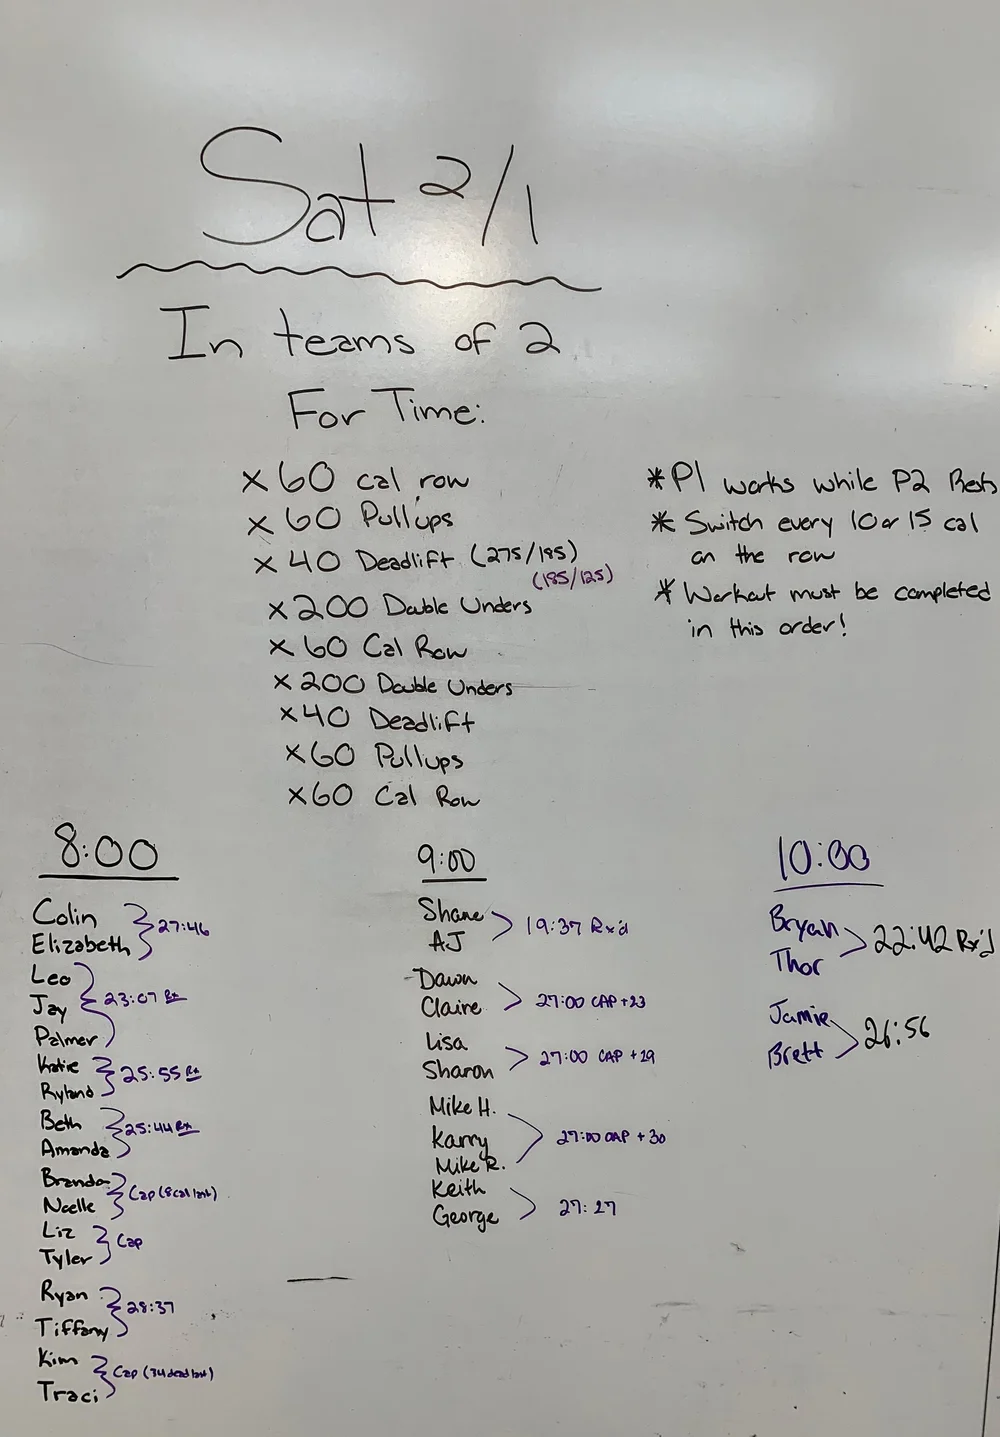 Sat 2/1
In teams of 2
For Time:
x 60 cal row
x 60 Pullups
x 40 Deadlift (275/185)
(185/125)
x 200 Double Unders
x 60 Cal Row
x 200 Double Unders
x 40 Deadlift
x 60 Pullups
x 60 Cal Row
* P1 works while P2 Rests
* Switch every 10 or 15 cal
on the row
* Workout must be completed
in this order!
8:00
Colin
Elizabeth
27:46
Leo
Jay
Palmer
23:07 Rx
Katie
Ryland
25:55 Rx
Beth
Amanda
25:44 Rx
Brandon
Noelle
Cap (8 cal left)
Liz
Tyler
Cap
Ryan
Tiffany
28:37
Kim
Traci
Cap (34 dead left)
9:00
Shane
AJ
19:37 Rx'd
Dawn
Claire
27:00 CAP +23
Lisa
Sharon
27:00 CAP +29
Mike H.
Karry
Mike R.
27:00 CAP + 30
Keith
George
27:27
10:00
Bryan
Thor
22:42 Rx'd
Jamie
Brett
26:56